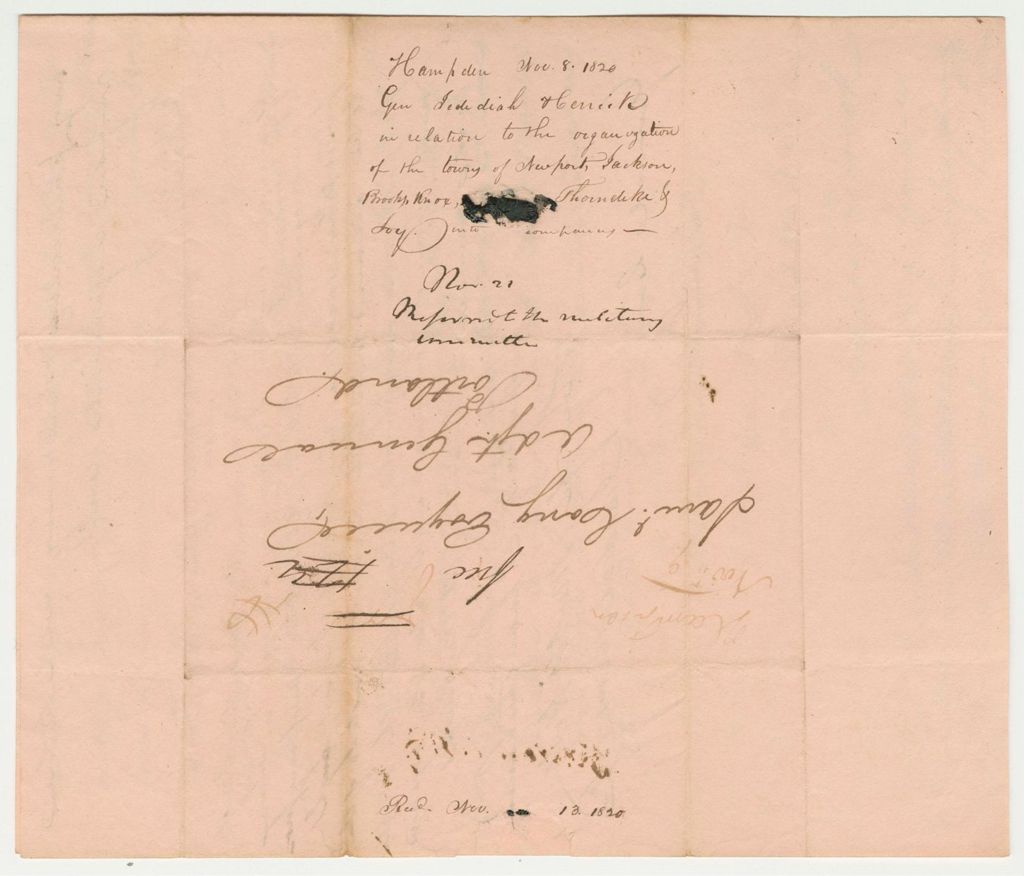 Hampden Nov. 8. 1820
Gen Jedediah Herrick
in relation to the organization
of the towns of Newport, Jackson,
Brooks, Knox, Thorndike &
Joy. into companies —
Nov. 21
Refer'd to the military
committee
Portland.
Adjt. General
Saml. Cony Esquire,
free
Hampden
Nov. 10
Recd. Nov. 13. 1820